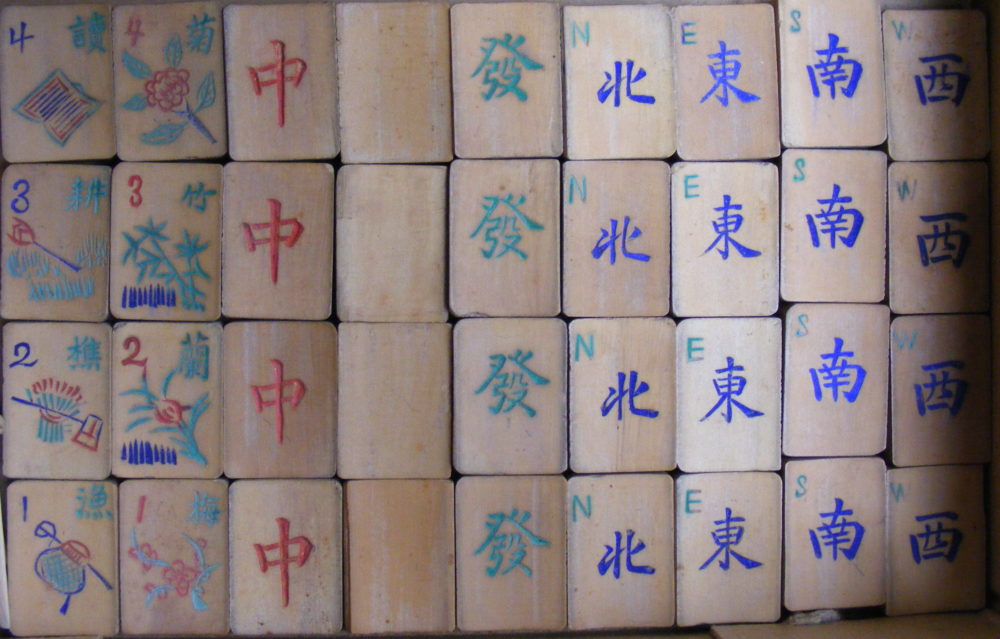 4 讀 4 菊 中 發 N 北 E 東 S 南 W 西
3 耕 3 竹 中 發 N 北 E 東 S 南 W 西
2 樵 2 蘭 中 發 N 北 E 東 S 南 W 西
1 漁 1 梅 中 發 N 北 E 東 S 南 W 西